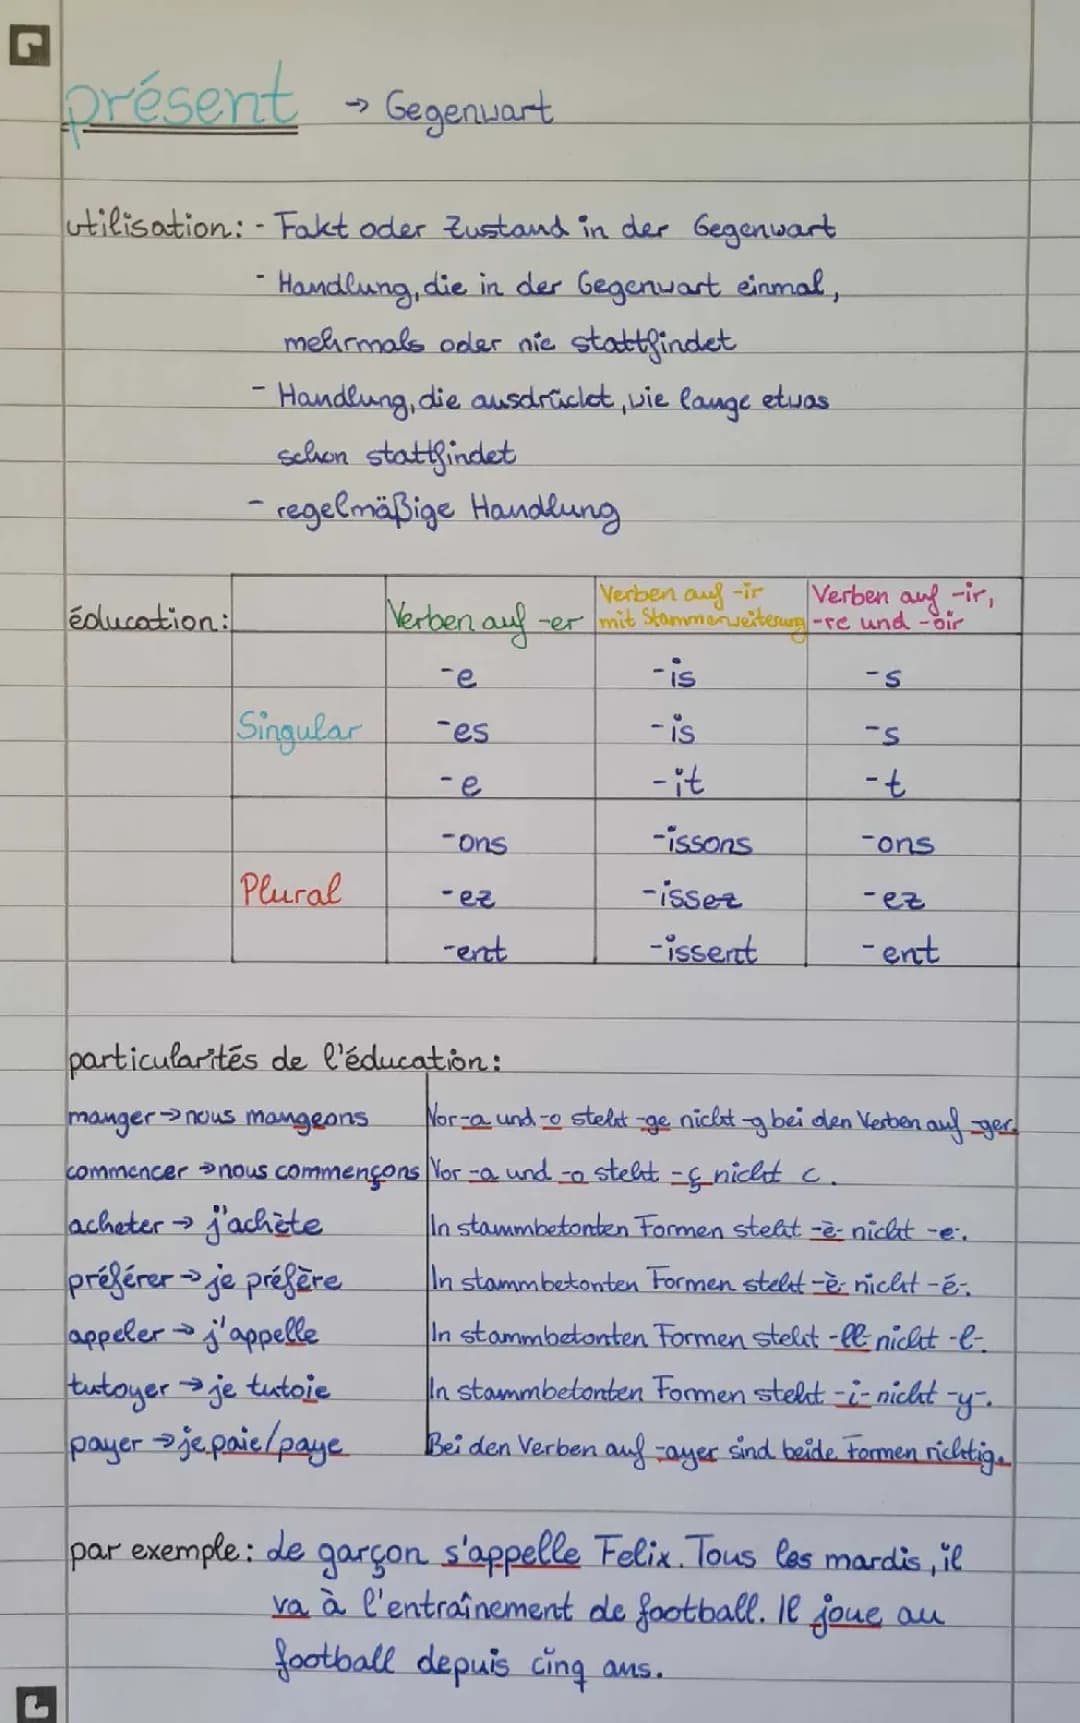 présent → Gegenwart
utilisation: - Fakt oder Zustand in der Gegenwart
- Handlung, die in der Gegenwart einmal,
mehrmals oder nie stattfindet
- Handlung, die ausdrückt, wie lange etwas
schon stattfindet
- regelmäßige Handlung
éducation: Verben auf -er Verben auf -ir mit Stammerweiterung Verben auf -ir, -re und -oir
-e -is -s
Singular -es -is -s
-e -it -t
-ons -issons -ons
Plural -ez -issez -ez
-ent -issent -ent
particularités de l'éducation:
manger → nous mangeons Vor -a und -o steht -ge nicht -g bei den Verben auf -ger.
commencer → nous commençons Vor -a und -o steht -ç nicht c.
acheter → j'achète In stammbetonten Formen steht -è- nicht -e-.
préférer → je préfère In stammbetonten Formen steht -è- nicht -é-.
appeler → j'appelle In stammbetonten Formen steht -ll- nicht -l-.
tutoyer → je tutoie In stammbetonten Formen steht -i- nicht -y-.
payer → je paie/paye Bei den Verben auf -ayer sind beide Formen richtig.
par exemple: de garçon s'appelle Felix. Tous les mardis, il
va à l'entraînement de football. Il joue au
football depuis cinq ans.